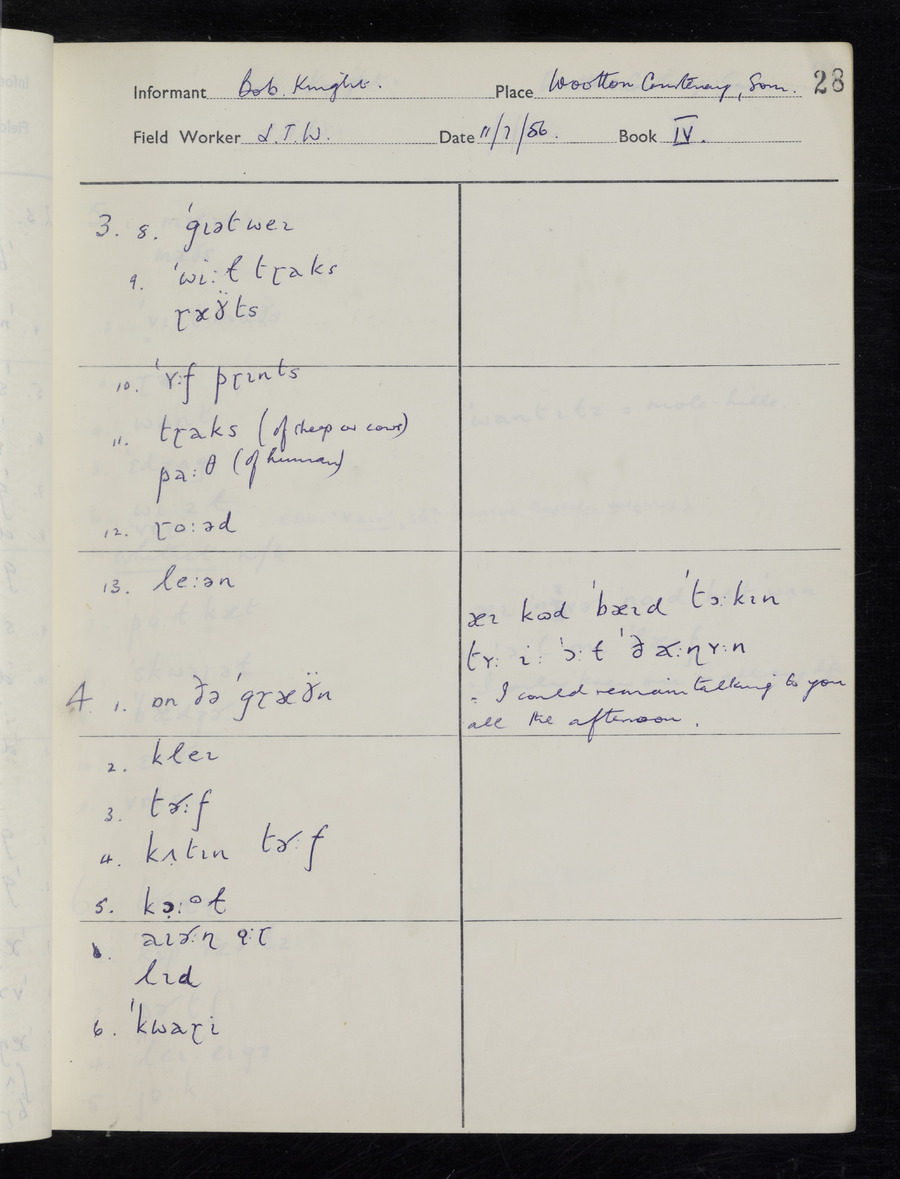 Informant Bob. Knight. Place Wootton Courtenay, Som. 28
Field Worker J.T.W. Date 11/7/56. Book IV.
3. 8. ˈgɪətweɪ
9. ˈwiːɫ tɽaks
ɽæÿts
10. ˈʏːf pɽɪnts
11. tɽaks (of sheep or cows)
paːθ (of human)
12. ɽoːəd
13. leːən
æɪ kʊd ˈbæɪd ˈtɔːkɪn
= I could remain talking to you
all the afternoon.
4. 1. ɒn ðə ˈgɽæÿn
2. kleɪ
3. tɚːf
4. kʌtɪn tɚːf
5.
lɪd
6. ˈkwaɽi